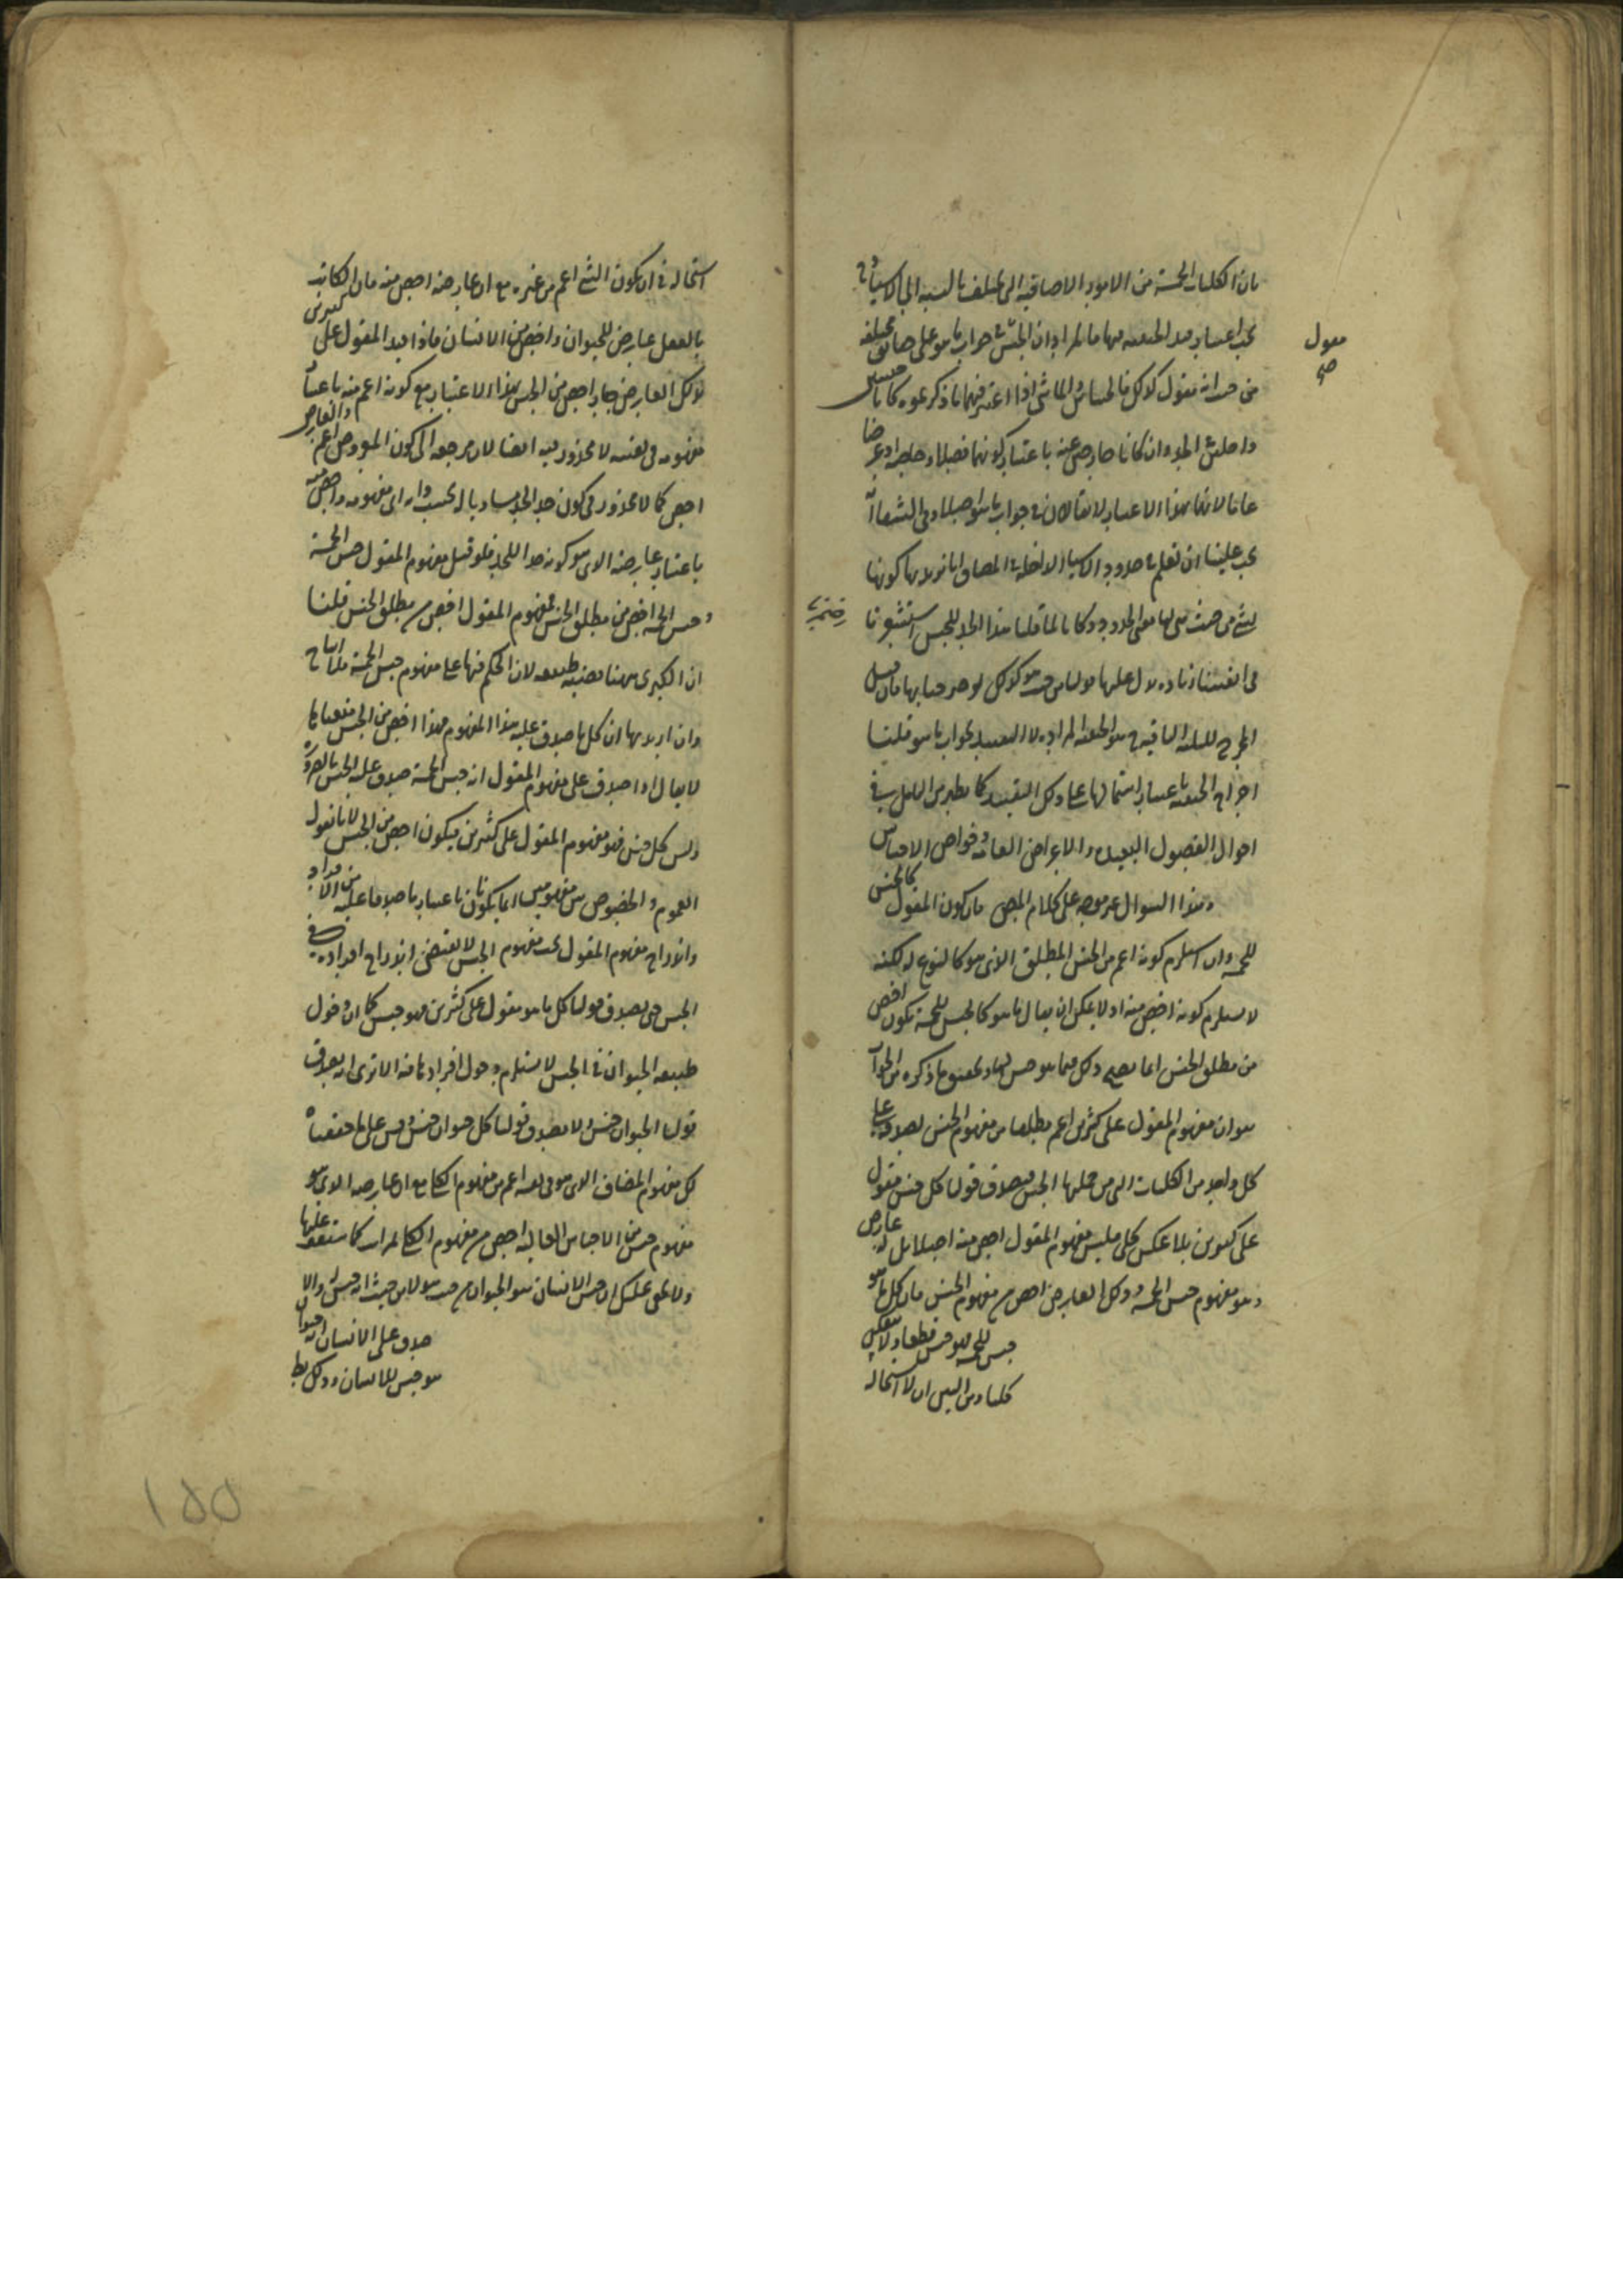 فان الكليات الخمسة من الامور الاضافية التي تختلف بالنسبة الى الاشياء
يجب اعتبار قيد الحيثية فيها فالمراد ان الجنس جواب ما هو على حقائق مختلفة
مقول
صح
من حيث انه مقول كذلك فالحساس والماشي اذا اعتبر فيهما ما ذكرنموه كانا جنسين
داخلين في الحد وان كانا خارجين عنه باعتبار كونهما فصلا وخاصة او عرضا
عاما لانهما بهذا الاعتبار لا يقالان في جواب ما هو اصلا وفي الشفا انه
يجب علينا ان نعلم في حدود الاشياء الداخلة في المضاف انا نريد بها كونها
لشيء من حيث هي لها معنى الحدود وكانا لما قلنا هذا الحد للجنس استشعرنا
في انفسنا زيادة يدل عليها قولنا من حيث هو كذلك لو صرحنا بها فان قيل
المخرج للثلثة الباقية هو الحيثية المرادة لا التقييد بجواب ما هو قلنا
اخراج الحيثية باعتبار اشتمالها على ذلك التقييد كما يظهر من التامل في
احوال الفصول البعيدة والاعراض العامة وخواص الاجناس
وهذا السوال غير موجه على كلام المص فان كون المقول كالجنس
للخمسة وان استلزم كونه اعم من الجنس المطلق الذي هو كالنوع له لكنه
لا يستلزم كونه اخص منه اذ لا يمكن ان يقال ما هو كالجنس للخمسة يكون اخص
من مطلق الجنس انما يصح ذلك فيما هو جنس لها وتحقيق ما ذكره من الجواب
هو ان مفهوم المقول على كثيرين اعم مطلقا من مفهوم الجنس لصدقه على
كل واحد من الكليات التي من جملتها الجنس فيصدق قولنا كل جنس مقول
على كثيرين بلا عكس كلي فليس مفهوم المقول اخص منه اصلا بل له عارض
وهو مفهوم جنس الخمسة وذلك العارض اخص من مفهوم الجنس فان كل ما هو
جنس للخمسة فهو جنس قطعا ولا ينعكس
كليا ومن البين ان لا استحالة
استحالة في ان يكون الشيء اعم من غيره مع ان عارضه اخص منه فان الكاتب
بالفعل عارض للحيوان واخص من الانسان فاذا قيد المقول على كثيرين
بذلك العارض صار اخص من الجنس بهذا الاعتبار مع كونه اعم منه باعتبار
مفهومه في نفسه لا محذور فيه ايضا لان مرجعه الى كون المعروض اعم والعارض
اخص كما لا محذور في كون حد الحد مساويا له بحسب ذاته اي مفهومه واخص منه
باعتبار عارضه الذي هو كونه حدا للحد فلو قيل مفهوم المقول جنس الخمسة
وجنس الخمسة اخص من مطلق الجنس فمفهوم المقول اخص من مطلق الجنس قلنا
ان الكبرى ههنا قضية طبيعية لان الحكم فيها على مفهوم جنس الخمسة فلا انتاج
وان اريد بها ان كل ما صدق عليه هذا المفهوم فهذا اخص من الجنس منعناها
لا يقال اذا صدق على مفهوم المقول انه جنس الخمسة صدق عليه الجنس بالضرورة
وليس كل جنس فهو مفهوم المقول على كثيرين فيكون اخص من الجنس لانا نقول
العموم والخصوص بين مفهومين انما يكونان باعتبار ما صدقا عليه من الافراد
واندراج مفهوم المقول تحت مفهوم الجنس لا يقتضي اندراج افراده في
الجنس حتى يصدق قولنا كل ما هو مقول على كثيرين فهو جنس كما ان دخول
طبيعة الحيوان في الجنس لا يستلزم دخول افرادها فيه الا ترى انه يصدق
قولنا الحيوان جنس ولا يصدق قولنا كل حيوان جنس وقس على ما حققناه
كل مفهوم المضاف الذي هو في نفسه اعم من مفهوم الكلي مع ان عارضه الذي هو
مفهوم جنس من الاجناس العالية اخص من مفهوم الكلي لمراتب كما ستقف عليها
ولا يخفى عليك ان جنس الانسان هو الحيوان من حيث هو لا من حيث انه جنس والا
صدق على الانسان انه حيوان
هو جنس للانسان وذلك بط
١٥٥